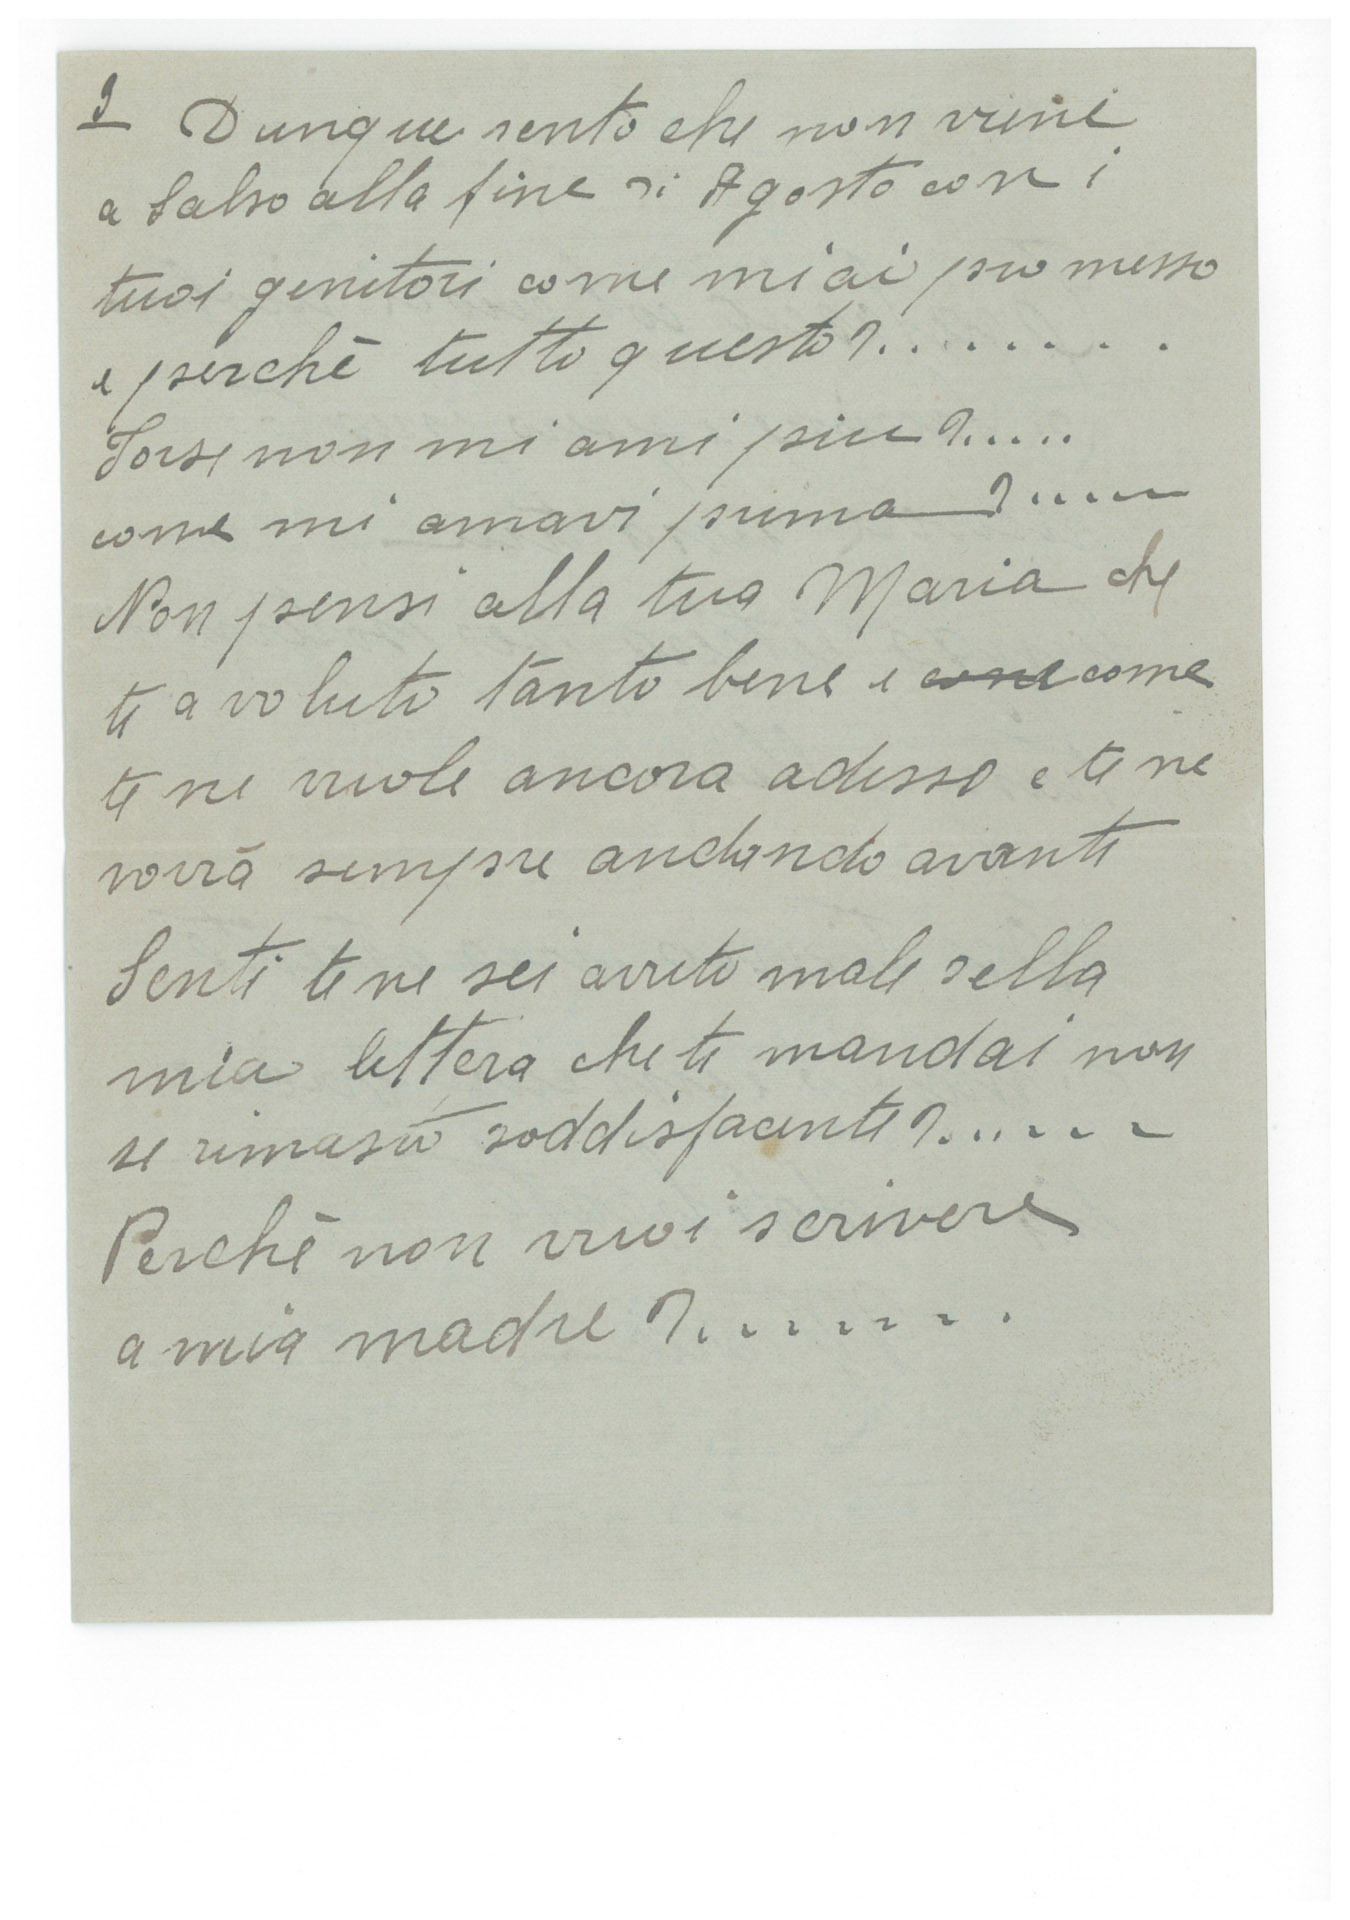 Dunque sento che non vieni
a Salso alla fine di Agosto con i
tuoi genitori come mi ai promesso
e perchè tutto questo?........
Forse non mi ami piu?.....
come mi amavi prima ?.....
Non pensi alla tua Maria che
ti a voluto tanto bene e come come
te ne vuole ancora adesso e te ne
vorrà sempre andando avanti
Senti te ne sei avuto male della
mia lettera che ti mandai non
se rimasto soddisfacente?......
Perchè non vuoi scrivere
a mia madre ?.......